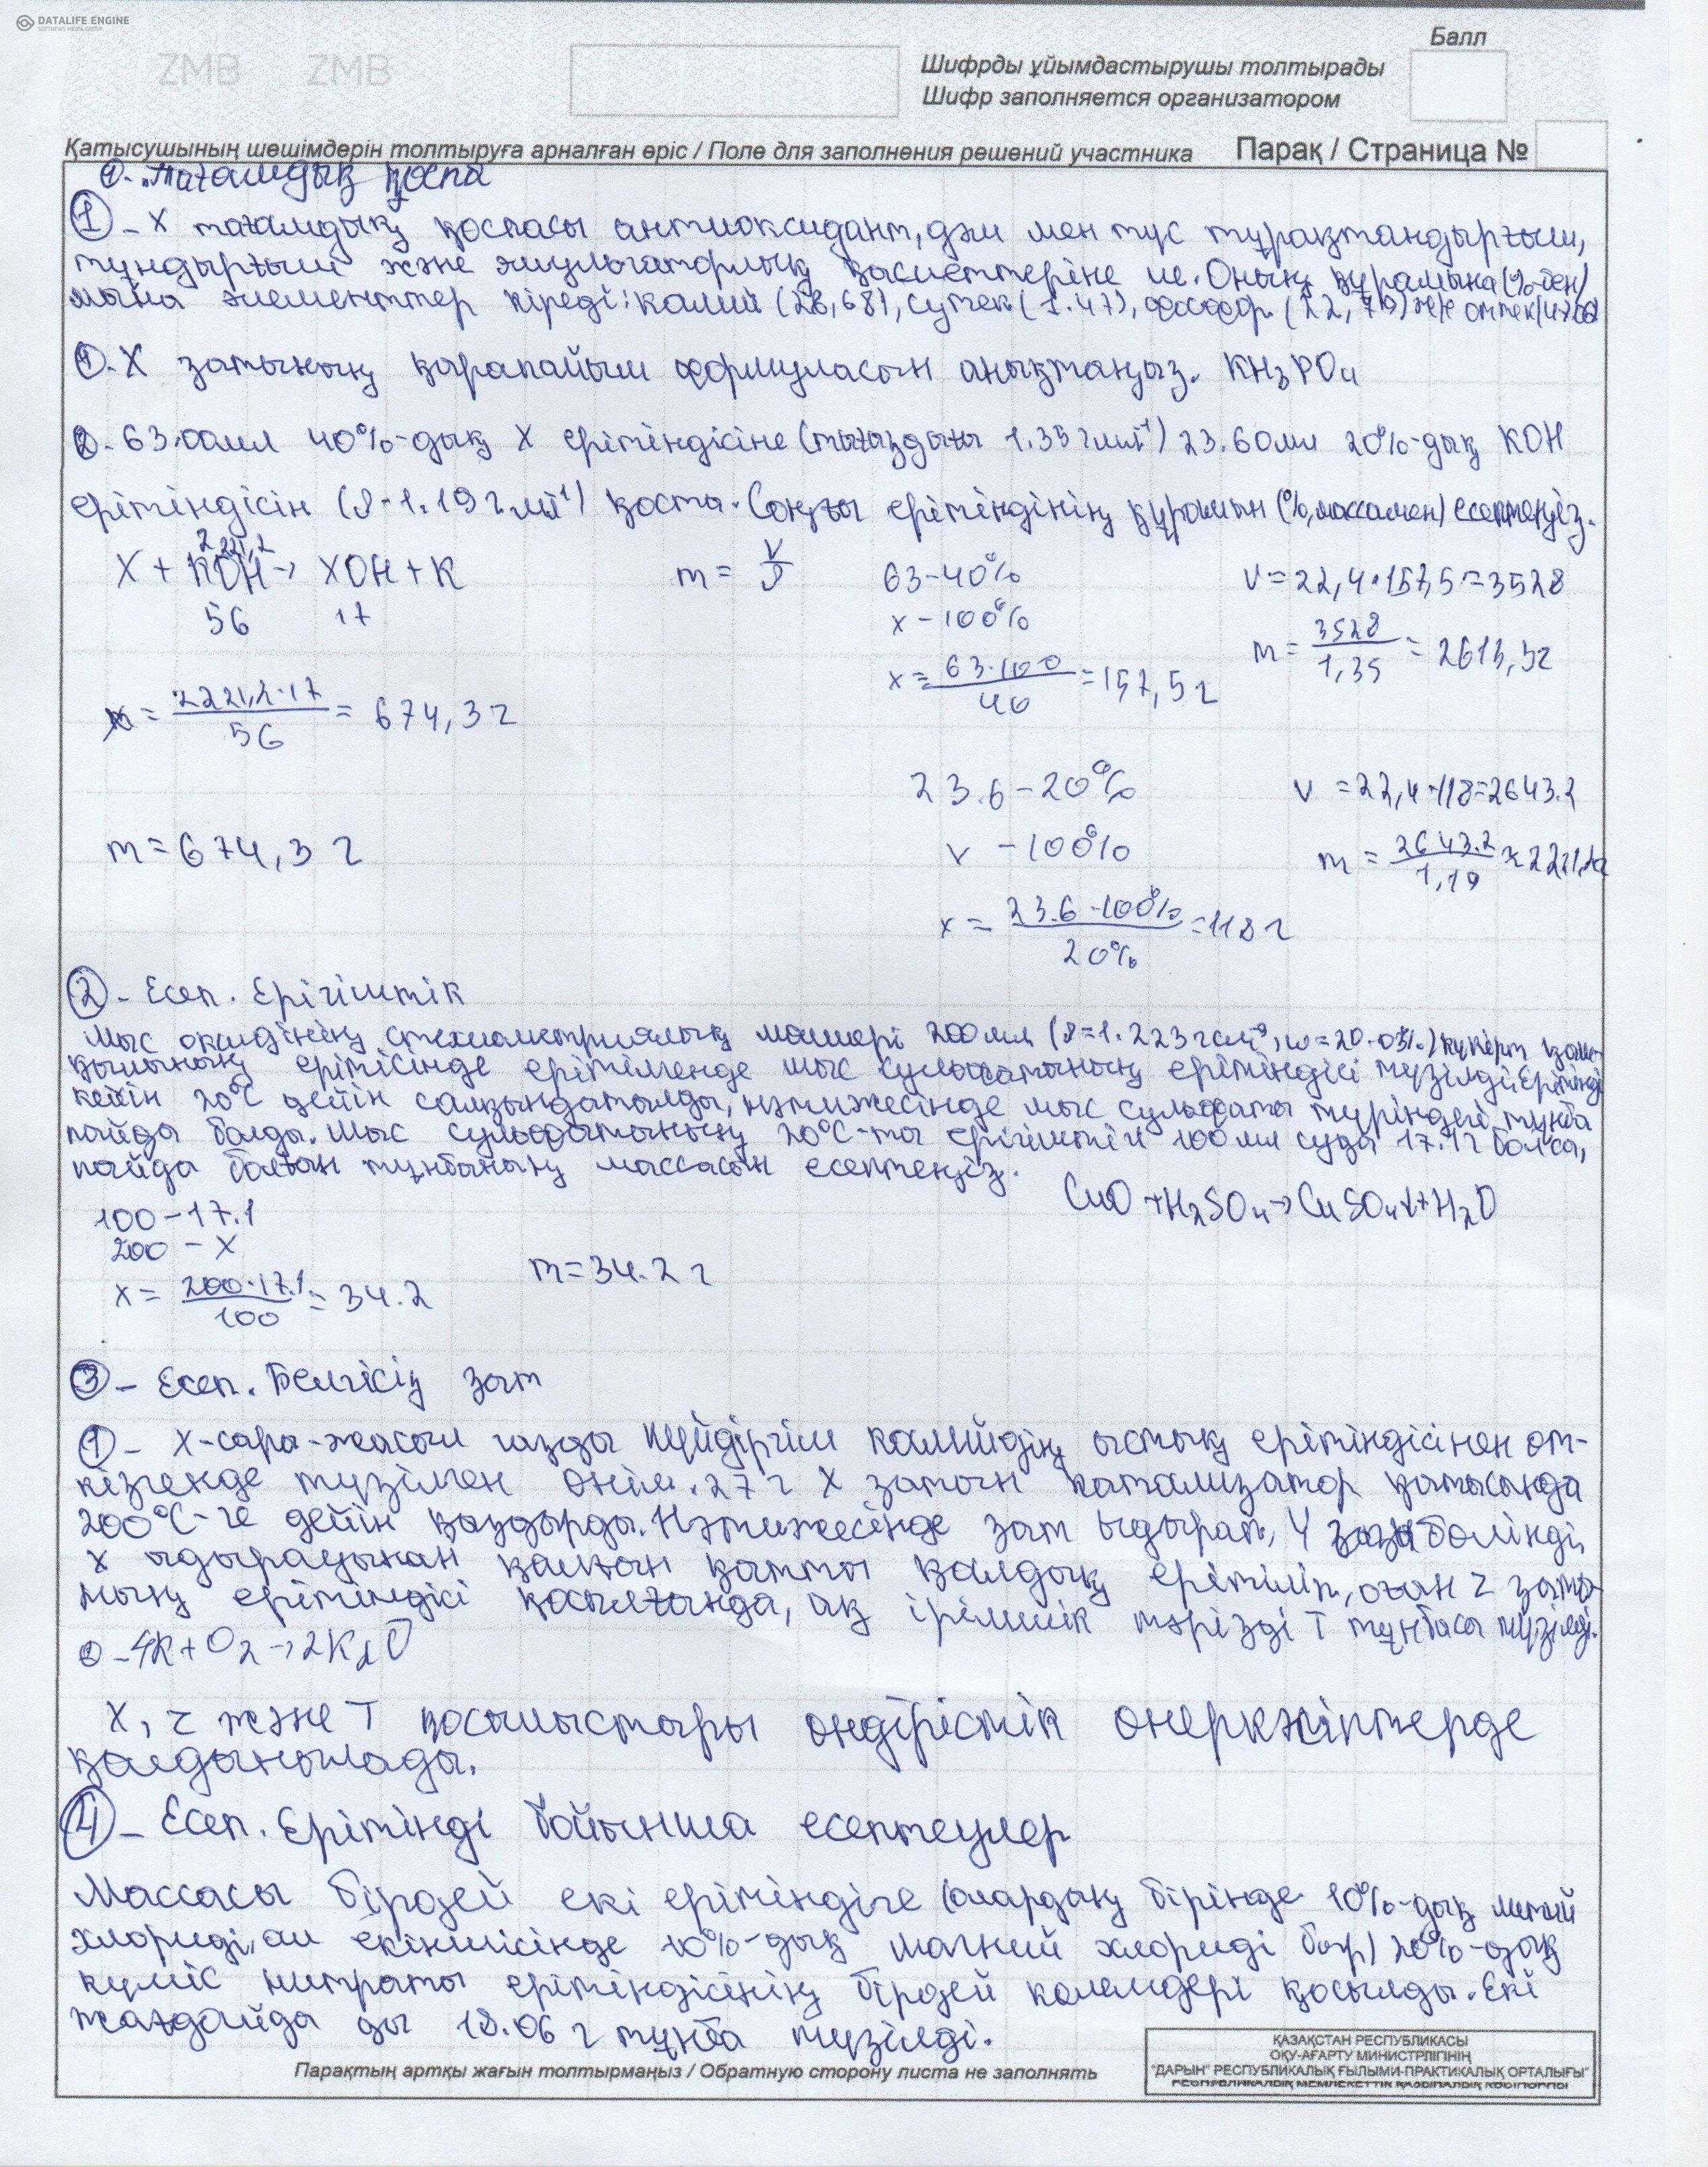 DATALIFE ENGINE
SOFTNEWS MEDIA GROUP
ZMB ZMB
Балл
Шифрды ұйымдастырушы толтырады
Шифр заполняется организатором
Қатысушының шешімдерін толтыруға арналған өріс / Поле для заполнения решений участника Парақ / Страница №
1. Тағамдық қоспа
1 - X тағамдық қоспасы антиоксидант, дәм мен түс тұрақтандырғыш,
тұндырғыш және эмульгаторлық қасиеттеріне ие. Оның құрамына (%-бен)
мына элементтер кіреді: калий (28,68), сутек (1.47), фосфор (22,79) ж/е оттек
1. X затының қарапайым формуласын анықтаңыз. KH3PO4
2. 63.00мл 40%-дық X ерітіндісіне (тығыздығы 1.35 г мл⁻¹) 23.60мл 20%-дық KOH
ерітіндісін (ρ=1.19 г.мл⁻¹) қоста. Соңғы ерітіндінің құрамын (%, массамен) есептеңіз.
2221,2
X + KOH → XOH + K m = V/ρ 63-40% V = 22,4·157,5=3528
56 17 x - 100% m = 3528/1,35 = 2613,3г
x = 63·100/40 = 157,5г
m = 2221,2·17/56 = 674,3г
23.6 - 20% V = 22,4·118=2643.2
m = 674,3 г V - 100% m = 2643.2/1,19 = 2221,2г
x = 23.6·100%/20% = 118г
2 - Есеп. Ерігіштік
Мыс оксидінің стехиометриялық мөлшері 200мл (ρ=1.223 гсм⁻³, w=20.03%) күкірт қыш-
қылының ерітісінде ерітілгенде мыс сульфатының ерітіндісі түзілді. Ерітінді
кейін 20°C дейін салқындатылды, нәтижесінде мыс сульфаты түріндегі тұнба
пайда болды. Мыс сульфатының 20°C-та ерігіштігі 100мл суда 17.1г болса,
пайда болған тұнбаның массасын есептеңіз.
CuO + H2SO4 → CuSO4↓ + H2O
100 - 17.1
200 - X
x = 200·17.1/100 = 34.2 m = 34.2 г
3 - Есеп. Белгісіз зат
1 - X-сары-жасыл газды күйдіргіш калийдің ыстық ерітіндісінен өт-
кізгенде түзілген өнім. 27 г X затын катализатор қатысында
200°C-ге дейін қыздырды. Нәтижесінде зат ыдырап, Y газы бөлінді,
X ыдырауынан қалған қатты қалдық ерітіліп, оған Z заты-
ның ерітіндісі қосылғанда, ақ ірімшік тәрізді T тұнбасы түзілді.
2 - 4K + O2 → 2K2O
X, Z және T қосылыстары өндірістік өнеркәсіптерде
қолданылады.
4 - Есеп. Ерітінді бойынша есептеулер
Массасы бірдей екі ерітіндіге (олардың бірінде 10%-дық литий
хлориді, ал екіншісінде 10%-дық магний хлориді бар) 20%-дық
күміс нитраты ерітіндісінің бірдей көлемдері қосылды. Екі
жағдайда да 18.06 г тұнба түзілді.
Парақтың артқы жағын толтырмаңыз / Обратную сторону листа не заполнять
ҚАЗАҚСТАН РЕСПУБЛИКАСЫ
ОҚУ-АҒАРТУ МИНИСТРЛІГІНІҢ
"ДАРЫН" РЕСПУБЛИКАЛЫҚ ҒЫЛЫМИ-ПРАКТИКАЛЫҚ ОРТАЛЫҒЫ"
РЕСПУБЛИКАЛЫҚ МЕМЛЕКЕТТІК ҚАЗЫНАЛЫҚ КӘСІПОРНЫ